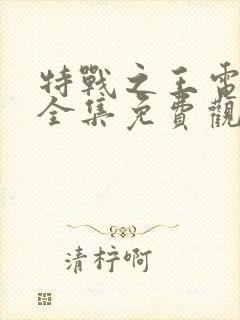 特戰之王電
全集免費觀
清梓啊